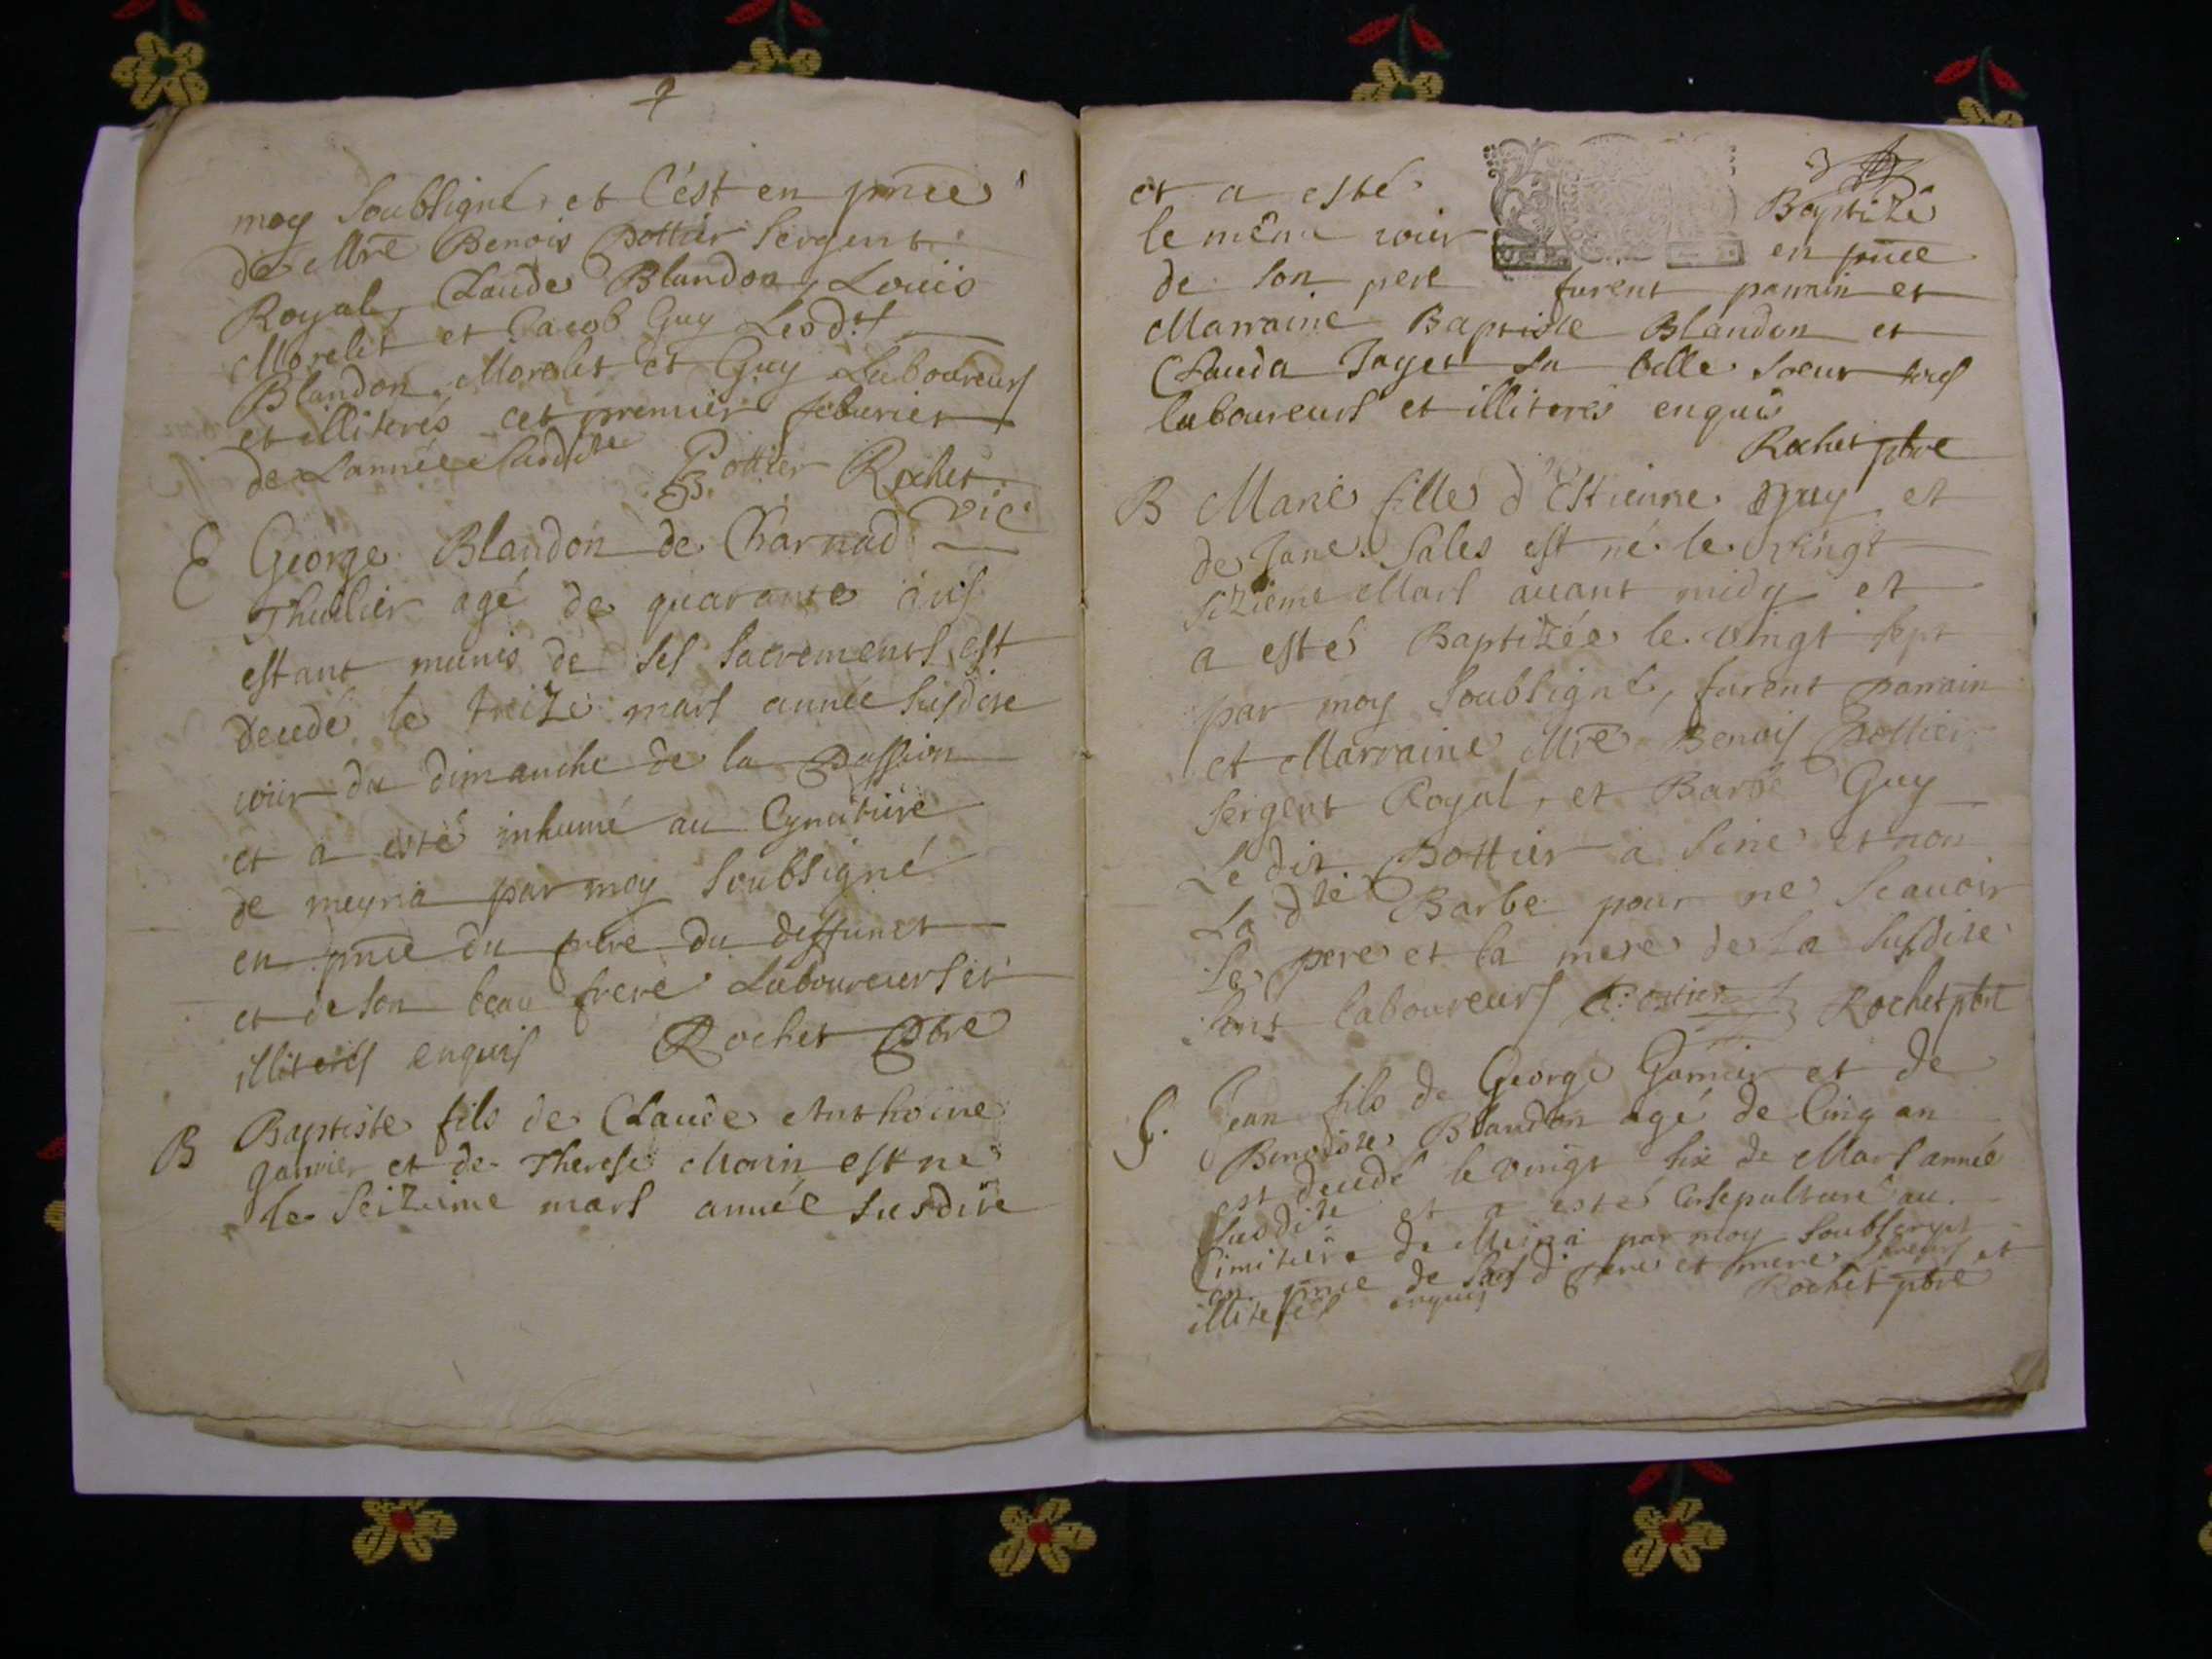 moy Soubsigné, et C'ést en pnce
de Mre Benois Pottier Sergent
Royal, Claude Blandon, Louis
Morelet et Jacob Guy Lesdts
Blandon, Morelet et Guy Laboureurs
et illiterés cet premier feburier
de L'année Susdite Pottier Rochet
vic
E George Blandon de Charnad
Thuilier agé de quarante ans
estant munis de ses sacrements est
decedé le treize mars année Susdite
iour du dimanche de la Passion
et a esté inhumé au Cymitiere
de meyria par moy Soubsigné
en pnce du frere du deffunct
et de son beau frere Laboureurs et
illiterés enquis Rochet Pbre
B Baptiste fils de Claude Anthoine
garnier et de Therese Morin est né
le Seizieme mars année Susdite
et a esté Baptizé
le même iour en pnce
de son pere furent parrain et
Marraine Baptiste Blandon et
Clauda Jayet sa belle soeur tous
laboureurs et illiterés enquis
Rochet pbre
B Marie fille d'Estienne Guy et
de Jane Sales est né le vingt
sizieme Mars auant midy et
a esté Baptizée le vingt sept
par moy Soubsigné, furent parrain
et Marraine Mre Benois Pottier
Sergent Royal, et Barbe Guy
Le dit Pottier a siné et non
La dte Barbe pour ne Scauoir
Le pere et la mere de la Susdite
sont laboureurs Pottier Rochet pbre
S. Jean fils de George Garnier et de
Benoiste Blandon agé de Cinq an
est decedé le vingt six de Mars année
Susdite et a esté Ensepulturé au
Cimitiere de Meiria par moy Soubscript
en pnce de Sesd pere et mere et
illiterés enquis Rochet pbre